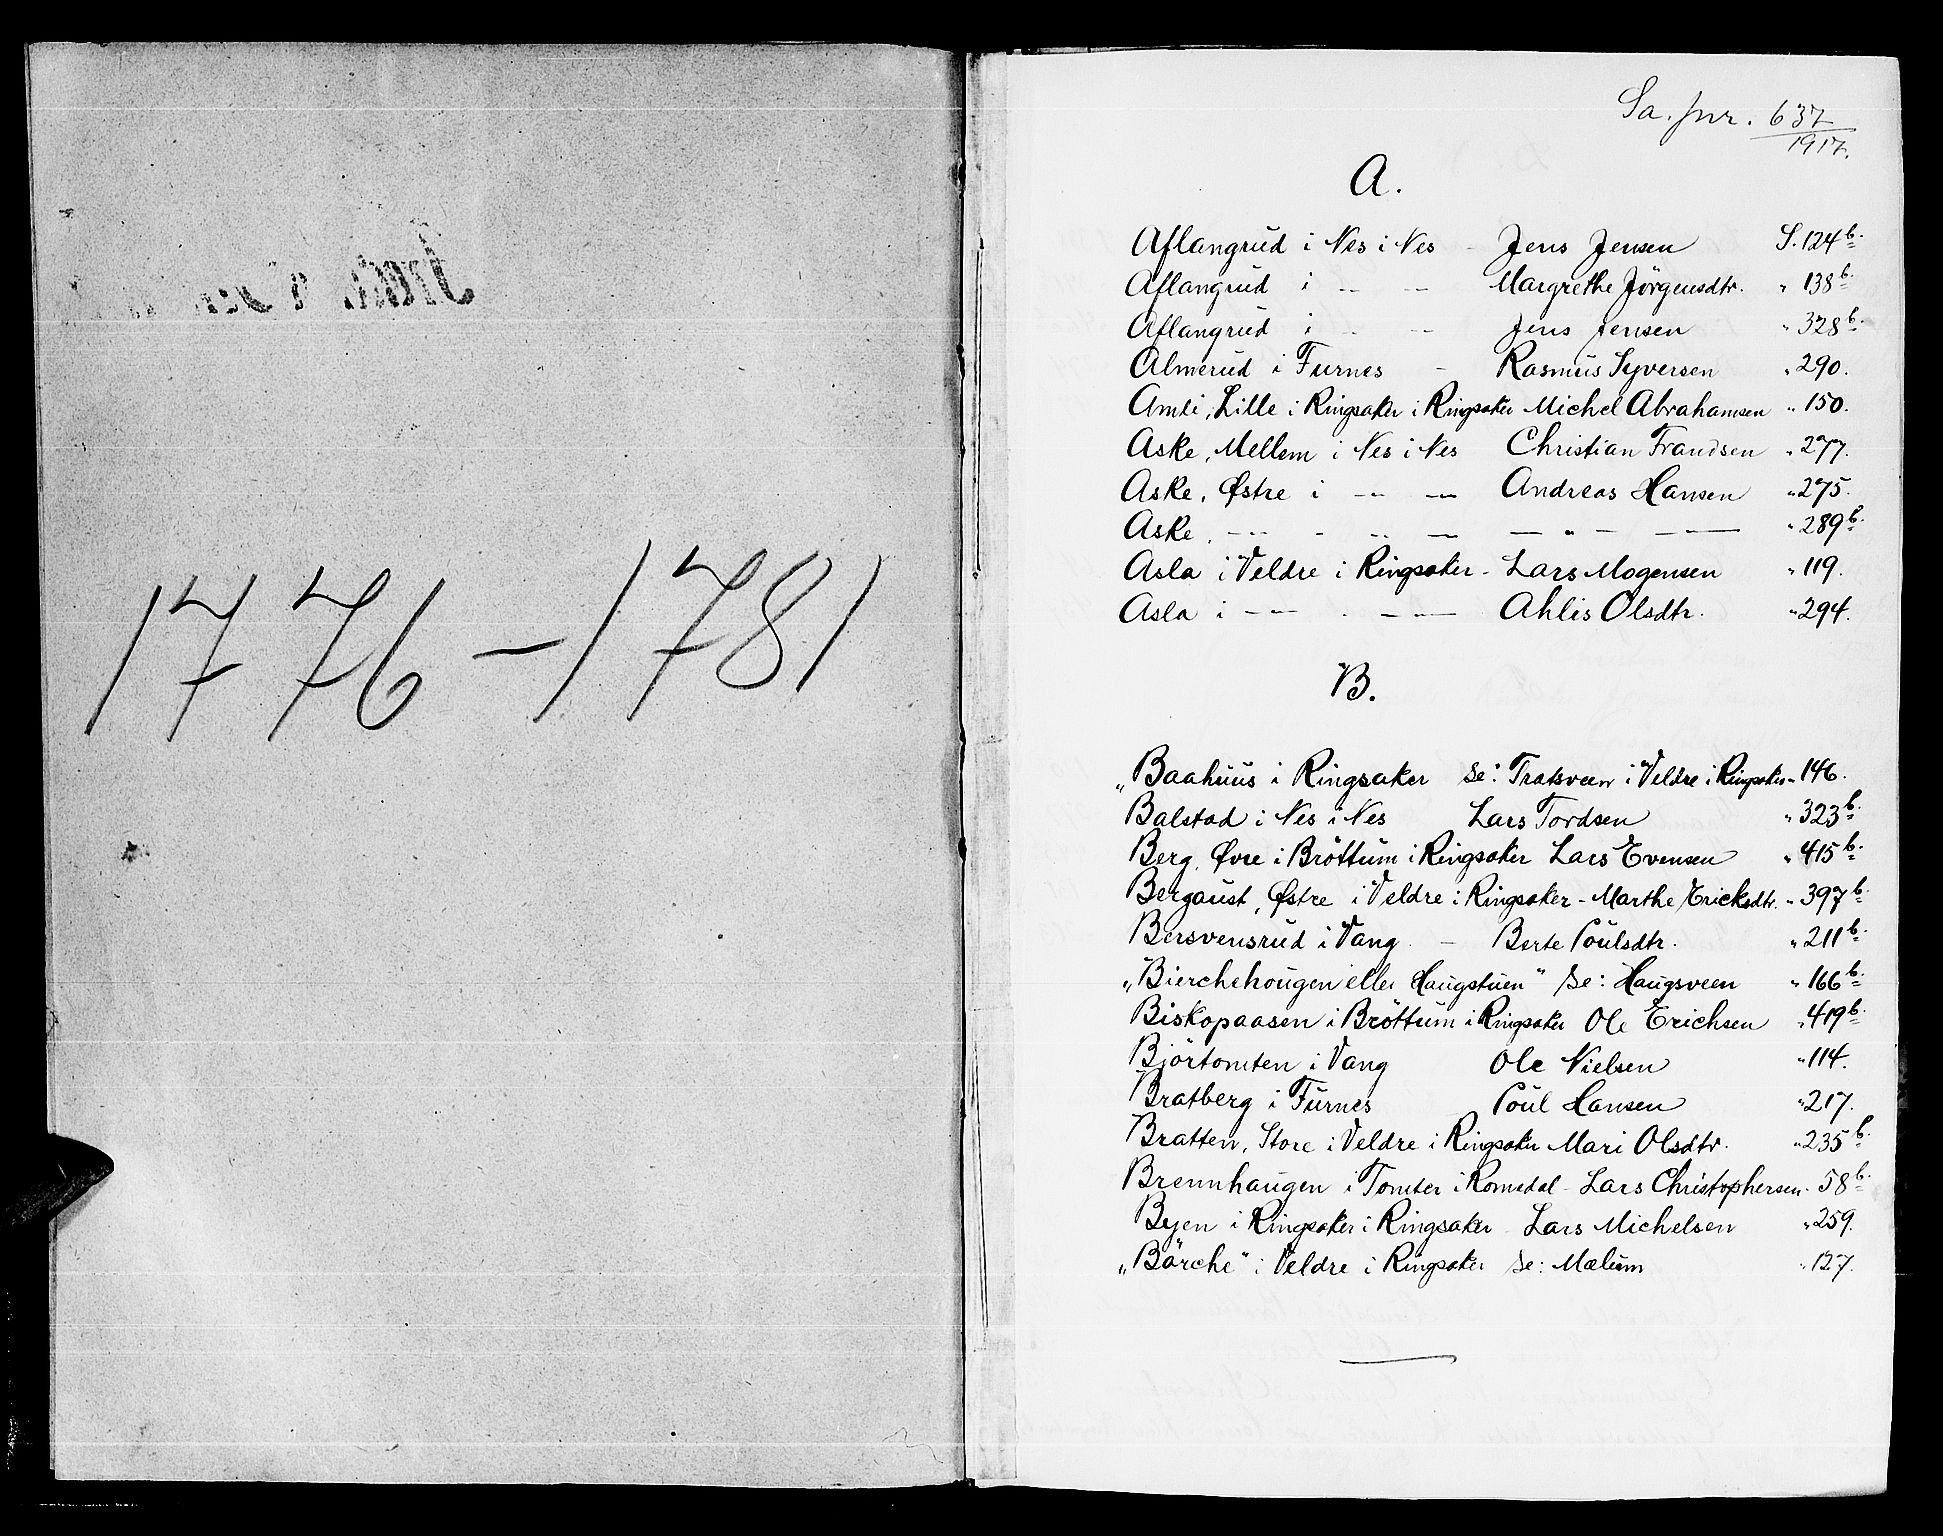 1776-1781
Sa. jnr. 637
1917.
A.
Aflangrud i Nes i Nes - Jens Jensen S. 124 b.
Aflangrud i -"- -"- Margrethe Jörgensdtr. " 138 b.
Aflangrud i -"- -"- Jens Jensen " 328 b.
Almerud i Furnes - Rasmus Syversen " 290.
Amli, Lille i Ringsaker i Ringsaker Michel Abrahamsen " 150.
Aske, Mellem i Nes i Nes Christian Frandsen " 277.
Aske, Østre i -"- -"- Andreas Hansen " 275.
Aske, -"- - -"- -"- - " - -"- " 289 b.
Asla i Veldre i Ringsaker - Lars Mogensen " 119.
Asla i -"- - -"- Ahlis Olsdtr. " 294.
B.
"Baahuus i Ringsaker se: Tratsveen i Veldre i Ringsaker " 146.
Balstad i Nes i Nes Lars Tordsen " 323 b.
Berg, Øvre i Bröttum i Ringsaker Lars Evensen " 415 b.
Bergaust, Østre i Veldre i Ringsaker - Marthe Ericksdtr. " 397 b.
Bersvensrud i Vang - Berte Poulsdtr. " 211 b.
"Bierchehougen eller Haugstuen" se: Haugsveen " 166 b.
Biskopaasen i Bröttum i Ringsaker Ole Erichsen " 419 b.
Björtomten i Vang Ole Nielsen " 114.
Bratberg i Furnes Poul Hansen " 217.
Bratten, Store i Veldre i Ringsaker Mari Olsdtr. " 235 b.
Brennhaugen i Tomter i Romedal - Lars Christophersen " 58 b.
Byen i Ringsaker i Ringsaker - Lars Michelsen " 259.
"Börche" i Veldre i Ringsaker se: Mælum " 127.